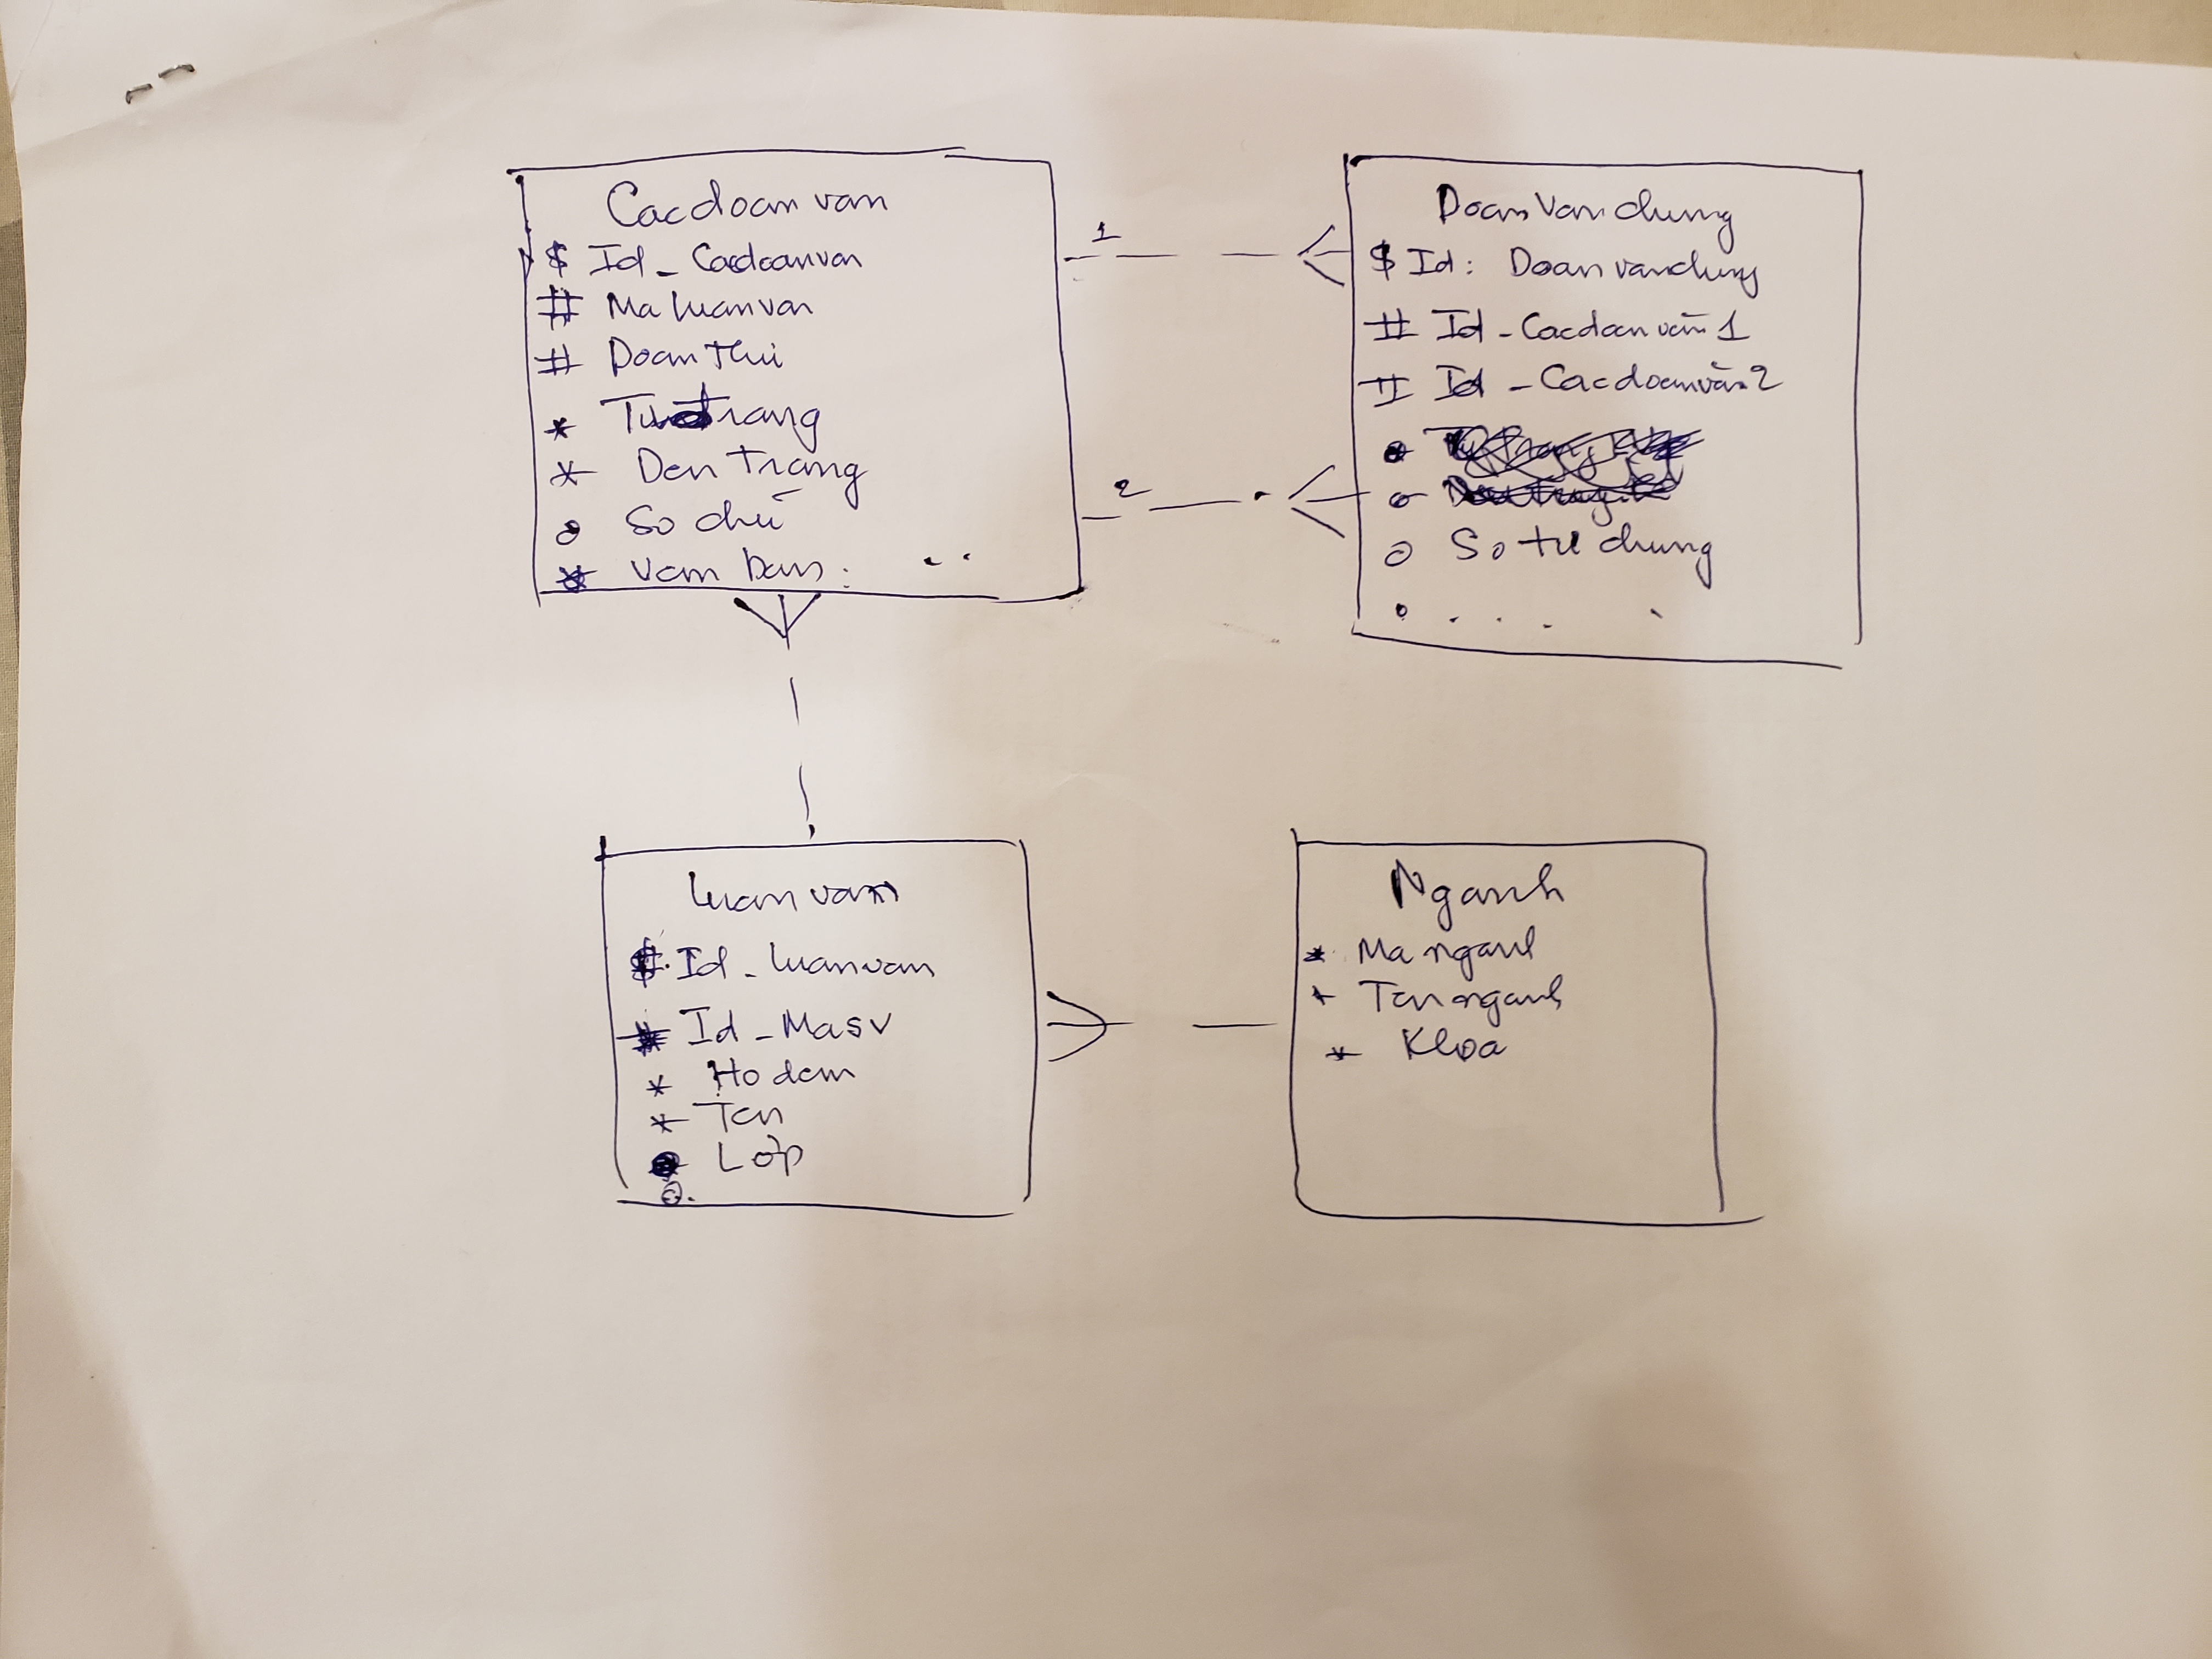 Cacdoanvan
$ Id_Cacdoanvan
# Maluanvan
# Doanthu
* Tutrang
* Den trang
o So chữ
* Van ban: ..
1
2
Doanvanchung
$ Id: Doanvanchung
# Id_Cacdoanvăn1
# Id_Cacdoanvăn2
o So từ chung
o . . . .
Luanvan
$ Id_luanvan
* Id_Masv
* Ho dem
* Ten
Lớp
o.
Nganh
* Ma nganh
* Ten nganh
* Khoa